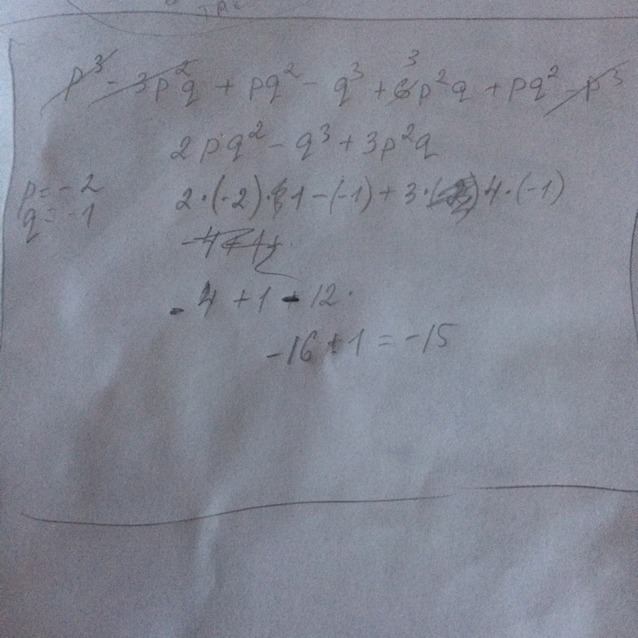 p³ - 3p²q + pq² - q³ + 6³p²q + pq² - p³
2pq² - q³ + 3p²q
p = -2
q = -1
2·(-2)·1-(-1)+3·4·(-1)
-4+1-12.
-16+1=-15